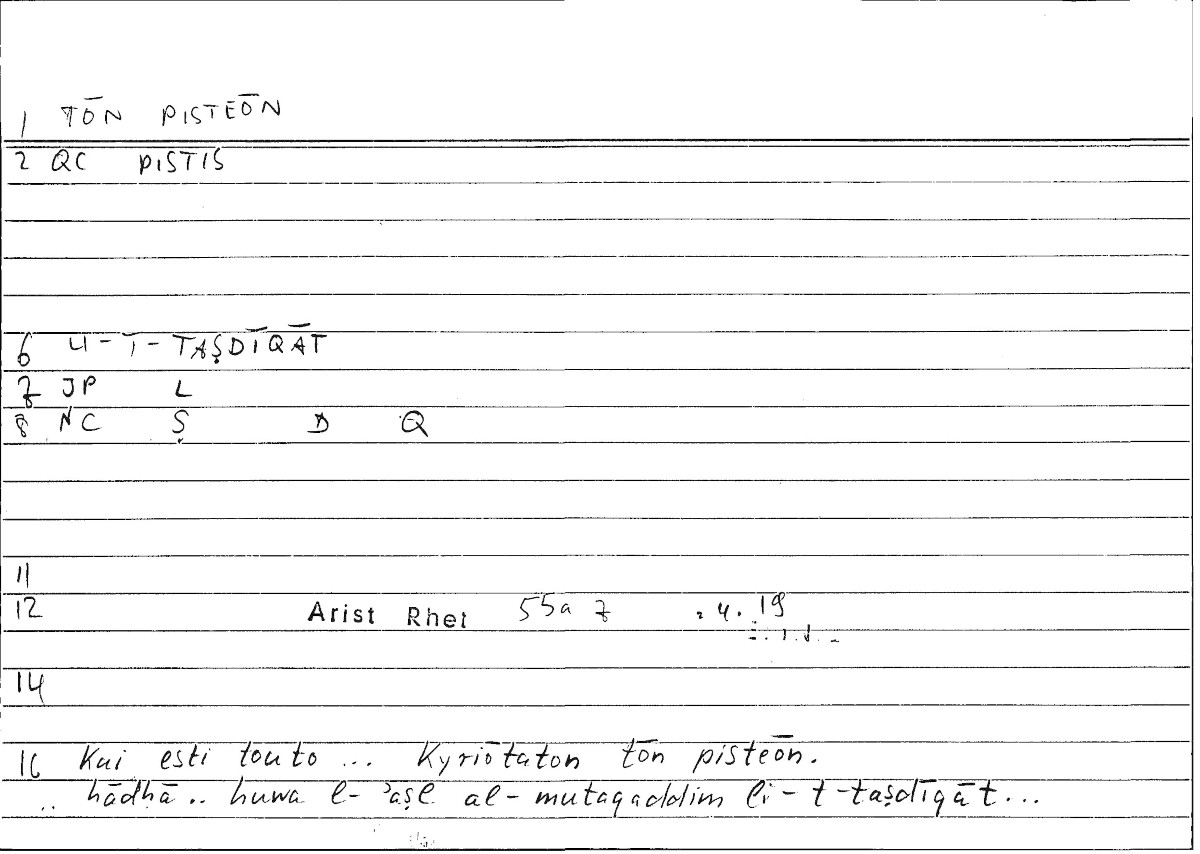 1 TŌN PISTEŌN
2 QC PISTIS
6 LI-T-TAṢDĪQĀT
7 JP L
8 NC Ṣ D Q
11
12 Arist Rhet 55a 7 4. 19
14
16 Kai esti touto ... Kyriōtaton tōn pisteōn.
.. hādhā .. huwa l-ʾaṣl al-mutaqaddim li-t-taṣdīqāt...